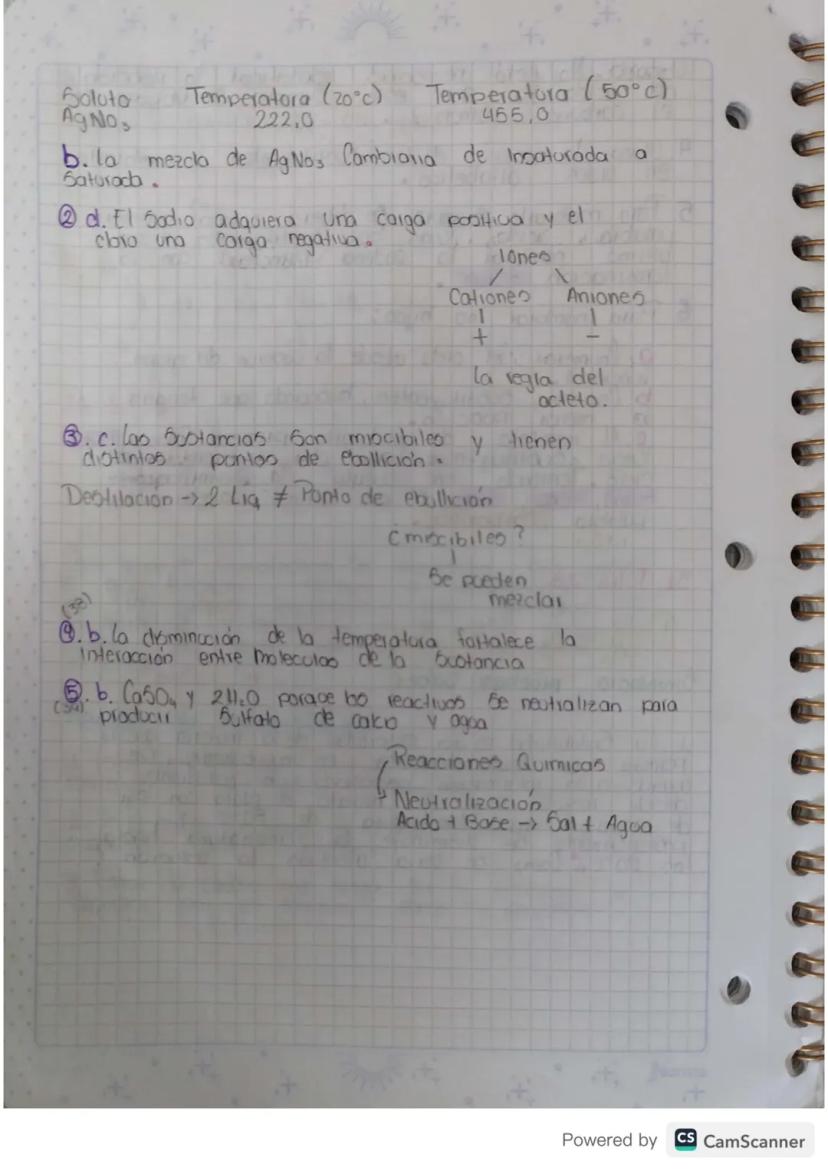 Soluto Temperatura (20°c) Temperatura (50°c)
AgNO₃ 222,0 455,0
b. la mezcla de AgNo₃ Cambiaria de Insaturada a
Saturada.
② d. El Sodio adquiera una carga positiva y el
cloro una carga negativa.
Iones
Cationes Aniones
+ −
la regla del
octeto.
③. c. las Sustancias Son miscibiles y tienen
distintos puntos de ebollición.
Destilación → 2 Liq ≠ Ponto de ebullición
¿miscibiles?
Se pueden
mezclar
(38)
④. b. la disminución de la temperatura fortalece la
Interacción entre moleculas de la sustancia
⑤. b. CaSO₄ y 2H₂O porque los reactivos Se neutralizan para
producir Sulfato de calcio y agua
Reacciones Quimicas
Neutralización
Acido + Base → Sal + Agua
Powered by CS CamScanner